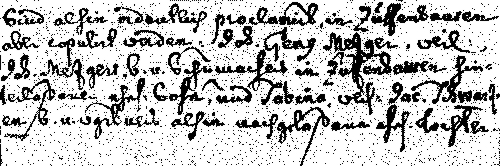 Sind alhier ordentlich proclamirt, in Zuffenhausen
aber copulirt worden. Joh. Georg Mezger, weil.
Joh. Mezgers, b. u. Schumachers in Zuffenhausen hin-
terlaßener ehel. Sohn, und Sabina, weil. Jac. Schwarz-
en b. u. alhier nachgelaßene ehl. Tochter.